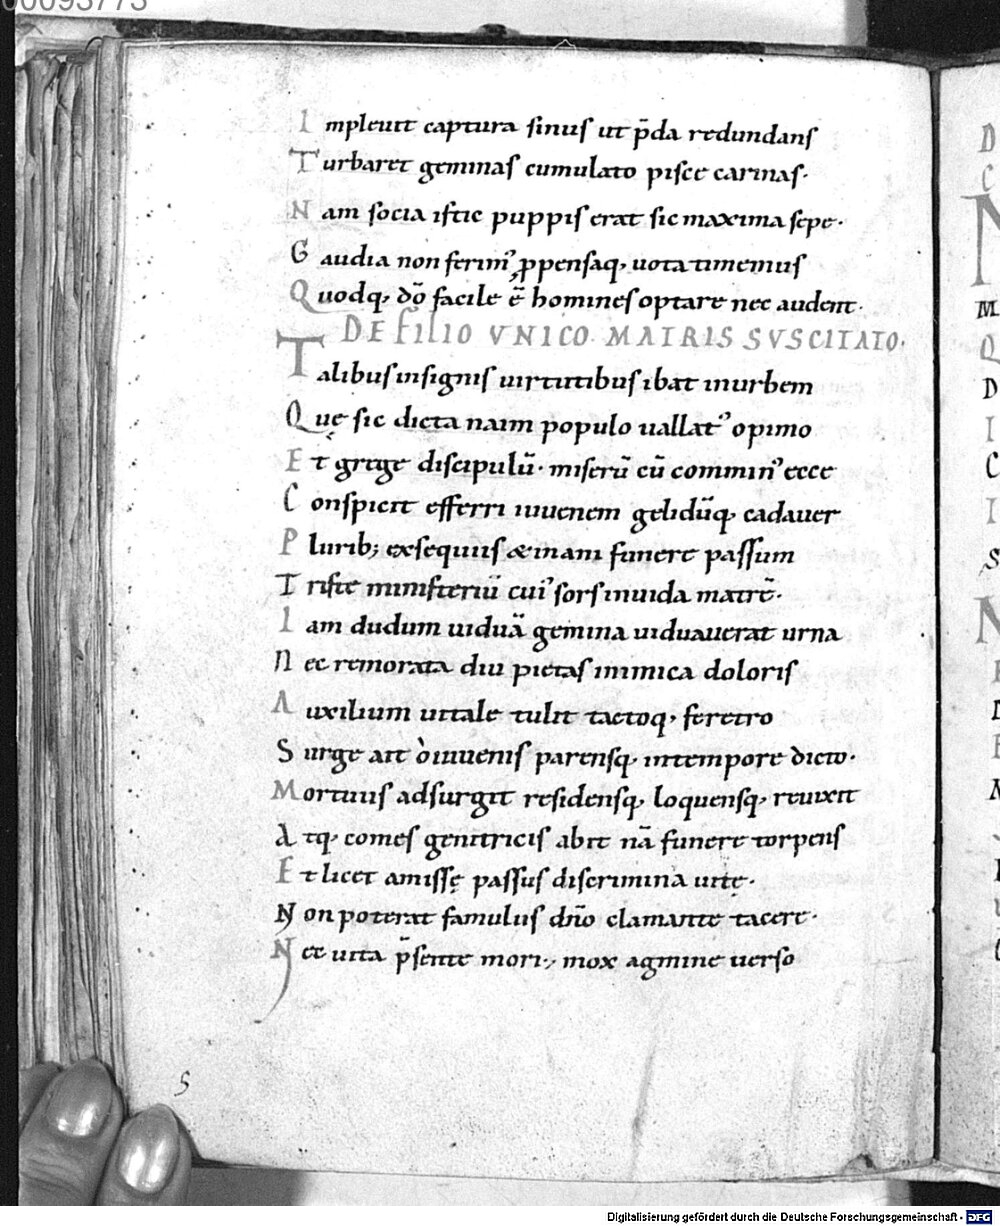 00093773
Impleuit captura sinus ut p̄da redundans
Turbaret geminas cumulato pisce carinas·
Nam socia istic puppis erat sic maxima sepe·
Gaudia non ferim᾽ ꝓpensaq; uota timemus
Quodq; dō facile ē homines optare nec audent·
DE FILIO VNICO MATRIS SVSCITATO·
Talibus insignis uirtutibus ibat in urbem
Quę sic dicta naim populo uallat᾽ opimo
Et grege discipulū· miserū cū commin᾽ ecce
Conspicit efferri iuuenem gelidūq; cadauer
Plurib; exsequiis & inani funere passum
Triste ministeriū cui᾽ sors inuida matrē·
Iam dudum uiduā gemina uiduauerat urna
Nec remorata diu pietas inimica doloris
Auxilium uitale tulit tactoq; feretro
Surge ait ò iuuenis parensq; in tempore dicto·
Mortuus adsurgit residensq; loquensq; reuixit
Atq; comes genitricis abit nā funere torpens
Et licet amissę passus discrimina uitę·
Non poterat famulus dn̄o clamante tacere·
Nec uita p̄sente mori; mox agmine uerso
D
C
N
M
Q
D
I
C
I
S
N
Digitalisierung gefördert durch die Deutsche Forschungsgemeinschaft - DFG